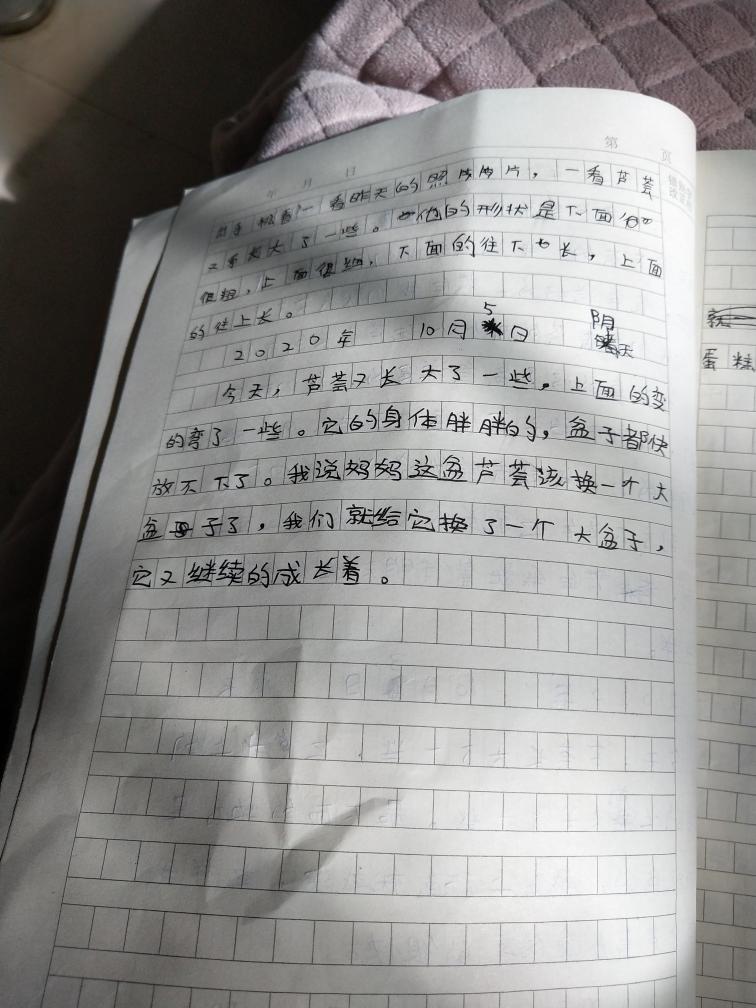 第 页
年 月 日
看昨天的照片,一看芦荟
又长大了一些。他的形状是下面
很粗,上面很细,下面的往下长,上面
的往上长。
2020年 10月5日 阴天
今天,芦荟又长大了一些,上面的变
的弯了一些。它的身体胖胖的,盆子都快
放不下了。我说妈妈这盆芦荟该换一个大
盆子了,我们就给它换了一个大盆子,
它又继续的成长着。
蛋糕